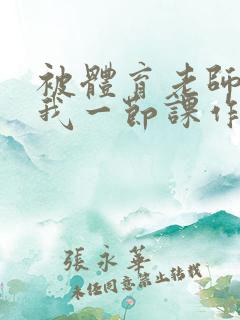 被體育老師
我一節課作
張永華
未經同意禁止轉載